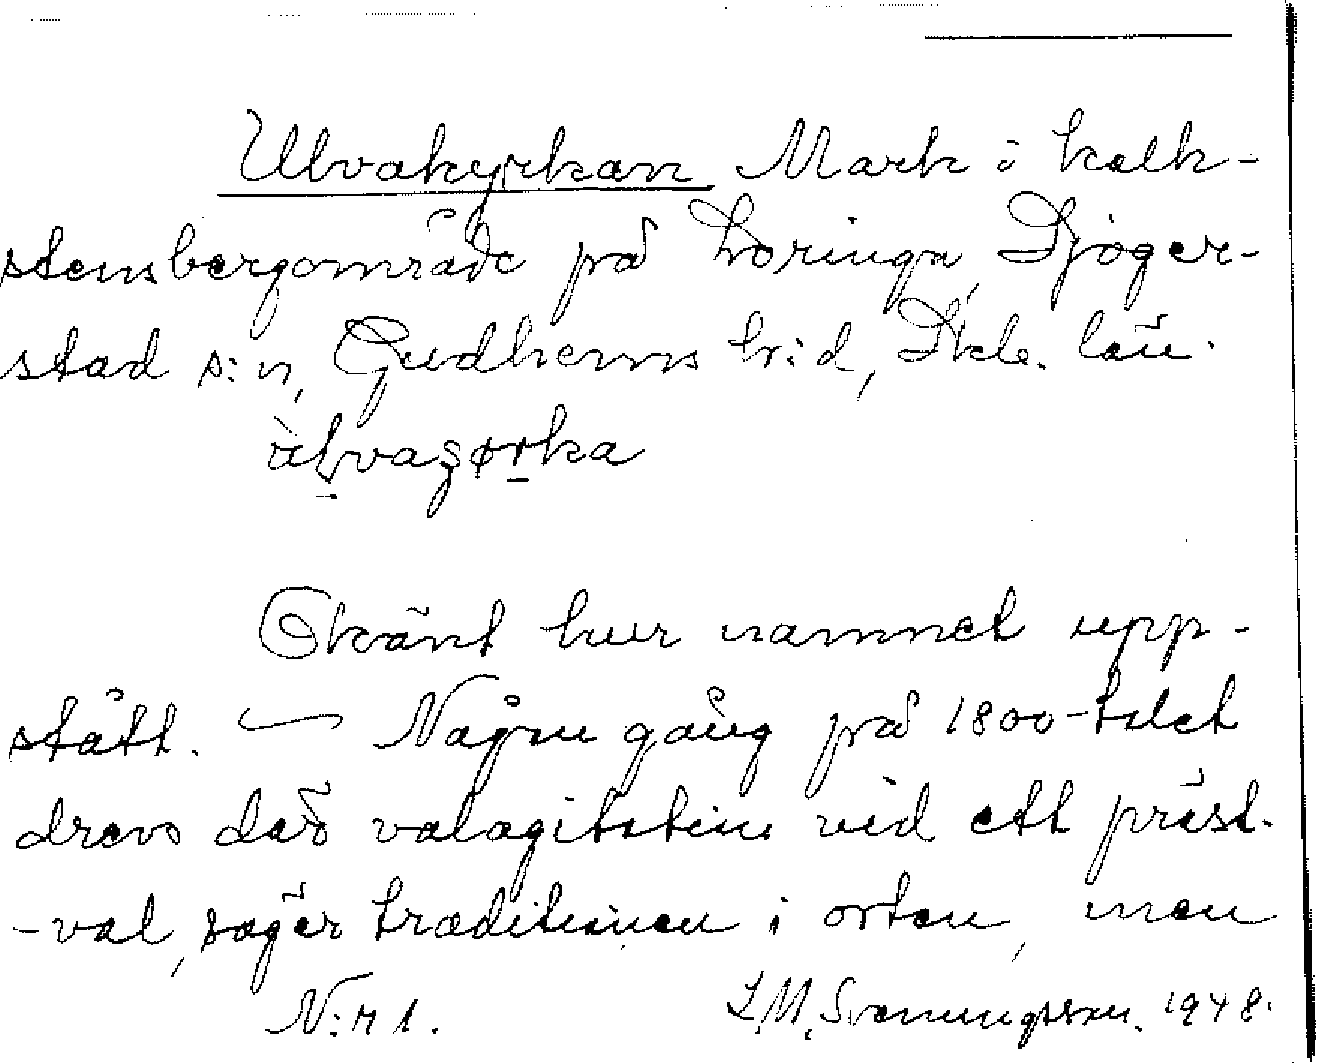 Ulvakyrkan Mark i kalk-
stensbergområde på Loringa, Stjöger-
stad s:n, Gudhems h:d, Skb. län.
Okänt hur namnet upp-
stått. — Någon gång på 1800-talet
drevs där valagitation vid ett präst-
-val, säger traditionen i orten, men
N:r 1. L.M. Svenungsson. 1948.